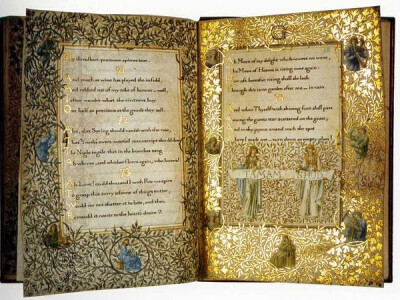 My threadbare penitence apieces tore.
And much as wine has played the infidel,
And robbed me of my robe of honour — well,
I often wonder what the vintners buy
One half so precious as the goods they sell.
Alas, that Spring should vanish with the rose,
That Youth's sweet-scented manuscript should close
The Nightingale that in the branches sang
Ah whence, and whither flown again, who knows!
Ah Love! could thou and I with Fate conspire
To grasp this sorry scheme of things entire,
Would not we shatter it to bits, and then
Remould it nearer to the hearts desire!
Ah Moon of my delight who knowest no wane,
The Moon of Heaven is rising once again:
How oft hereafter rising shall she look
Through this same garden after me — in vain.
And when Thyself with shining foot shall pass
Among the guests star scattered on the grass,
And in thy joyous errand reach the spot
Where I made one, turn down an empty glass!
TAMAM